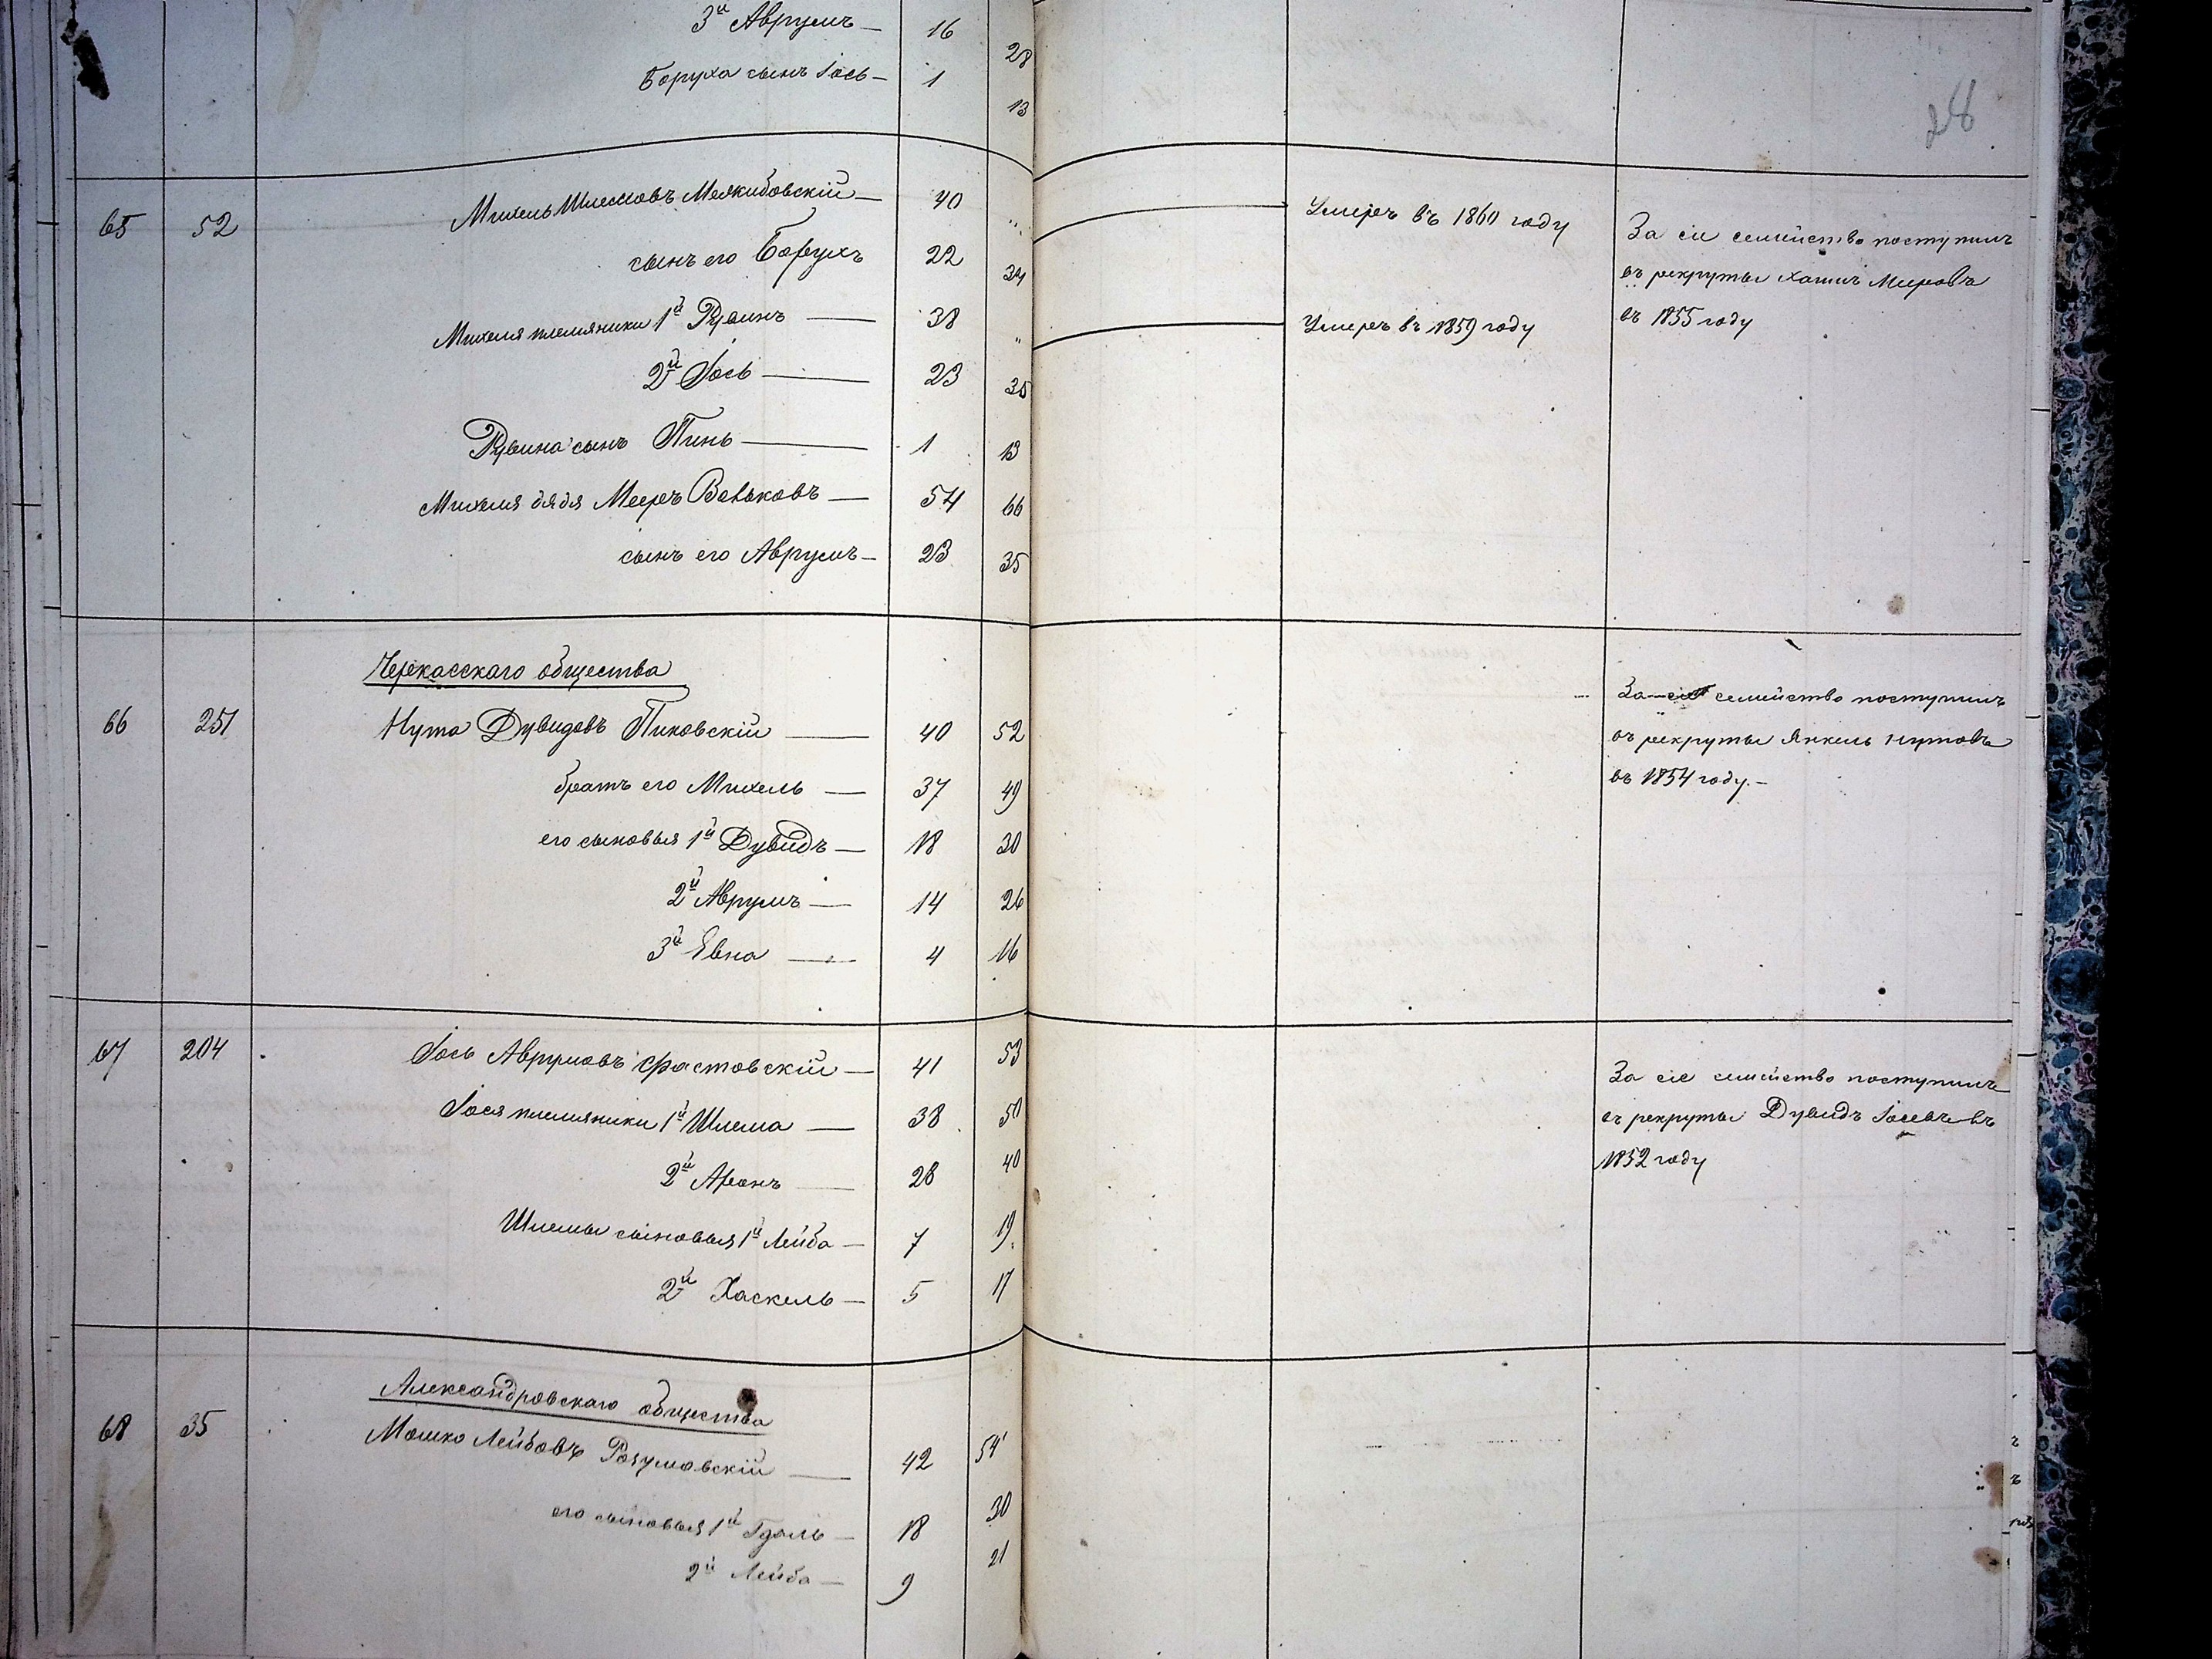 3й Аврумъ — 16 28
Боруха сынъ Іось — 1 13
28
65 52 Михель Шлемовъ Межибовскій — 40 „ Умеръ въ 1860 году
сынъ его Борухъ 22 34
Михеля племяники 1й Рувинъ — 38 „ Умеръ въ 1859 году
2й Іось — 23 35
Рувина сынъ Пинь — 1 13
Михеля дядя Мееръ Вольковъ — 54 66
сынъ его Аврумъ — 23 35
За сіе семейство поступилъ
въ рекруты Хаимъ Мееровъ
въ 1855 году
Черкасскаго общества
66 251 Нута Дувидовъ Пиковскій — 40 52
братъ его Михель — 37 49
его сыновья 1й Дувидъ — 18 30
2й Аврумъ — 14 26
3й Евна — 4 16
За сіе семейство поступилъ
въ рекруты Янкель Нутовъ
въ 1854 году. —
67 204 Іось Аврумовъ Фастовскій — 41 53
Іося племяники 1й Шлема — 38 50
2й Аронъ — 28 40
Шлемы сыновья 1й Лейба — 7 19.
2й Хаскель — 5 17
За сіе семейство поступилъ
въ рекруты Дувидъ Іосевъ въ
1852 году
Александровскаго общества
68 35 Мошко Лейбовъ Розумовскій — 42 54
его сыновья 1й Гдаль — 18 30
2й Лейба — 9 21